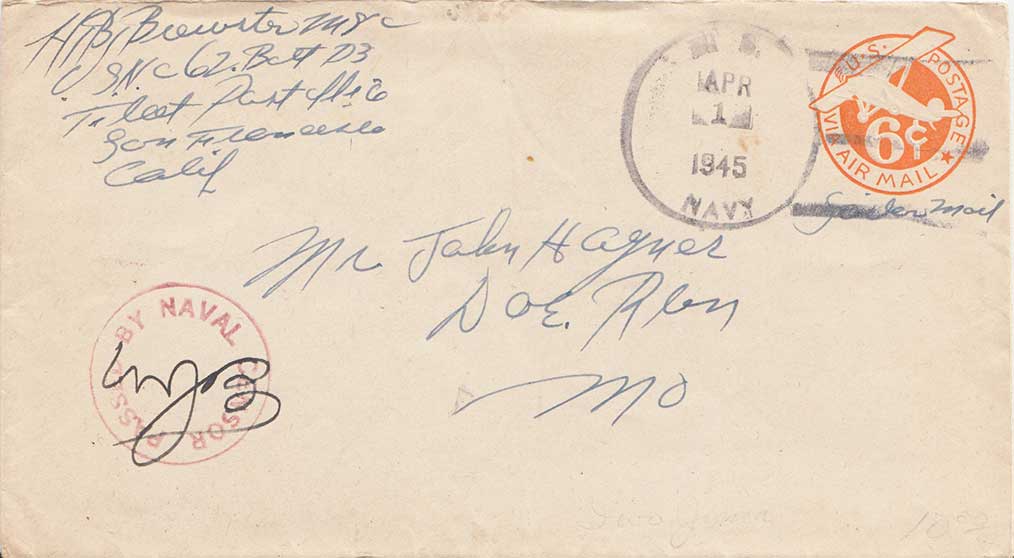 H.B. Brewster M 1/c
U.S.N.C 62. Batt D3
Fleet Post office
San Francisco
Calif
U.S.
APR
1
1945
NAVY
U.S. POSTAGE
6¢
VIA AIR MAIL
Sailor Mail
Mr John Hagner
Doe. Run
Mo
PASSED BY NAVAL CENSOR
Iwo Jima